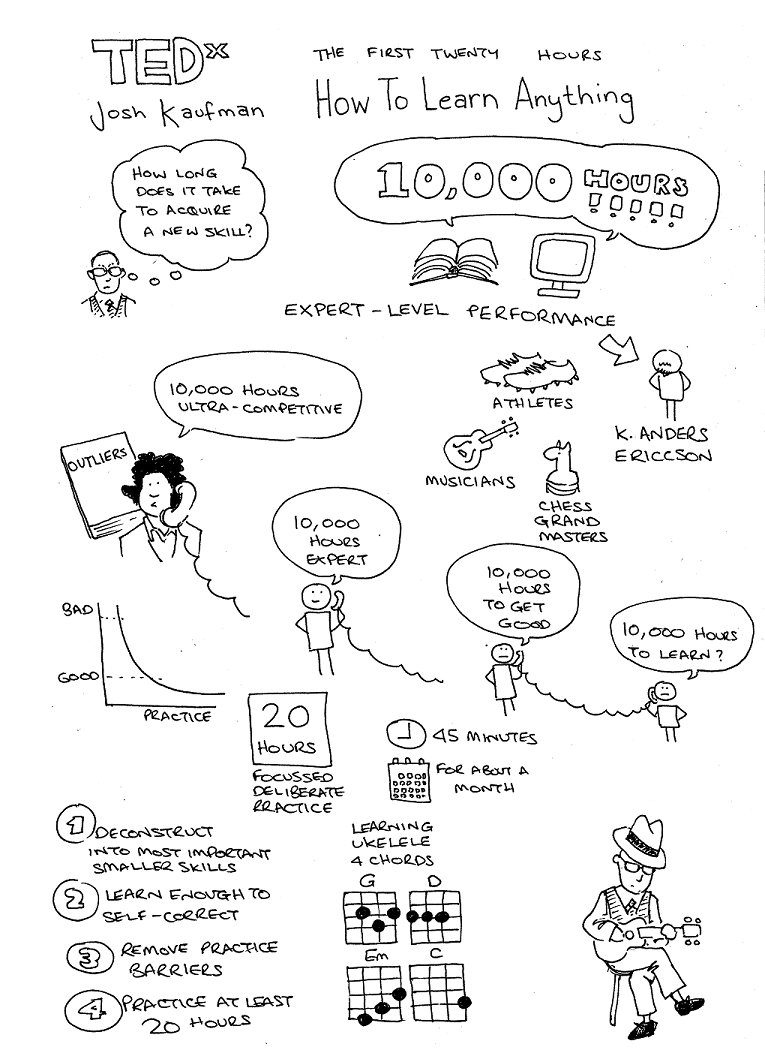 TEDx
Josh Kaufman
THE FIRST TWENTY HOURS
How To Learn Anything
HOW LONG
DOES IT TAKE
TO ACQUIRE
A NEW SKILL?
10,000 HOURS
!!!!!
EXPERT-LEVEL PERFORMANCE
ATHLETES
MUSICIANS
CHESS
GRAND
MASTERS
K. ANDERS
ERICCSON
10,000 HOURS
ULTRA-COMPETITIVE
OUTLIERS
10,000
HOURS
EXPERT
10,000
HOURS
TO GET
GOOD
10,000 HOURS
TO LEARN?
BAD
GOOD
PRACTICE
20
HOURS
FOCUSSED
DELIBERATE
PRACTICE
45 MINUTES
FOR ABOUT A
MONTH
1 DECONSTRUCT
INTO MOST IMPORTANT
SMALLER SKILLS
2 LEARN ENOUGH TO
SELF-CORRECT
3 REMOVE PRACTICE
BARRIERS
4 PRACTICE AT LEAST
20 HOURS
LEARNING
UKELELE
4 CHORDS
G D
Em C